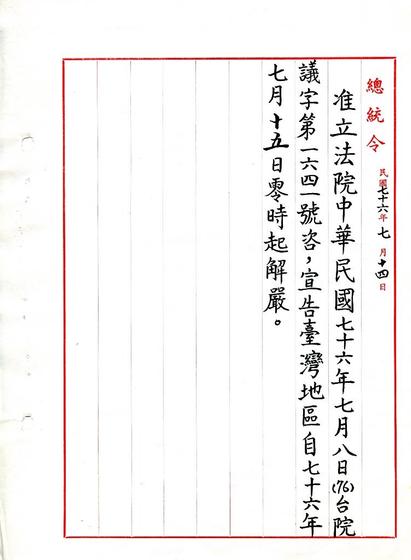 總統令
民國七十六年七月十四日
准立法院中華民國七十六年七月八日(76)台院
議字第一六四一號咨，宣告臺灣地區自七十六年
七月十五日零時起解嚴。